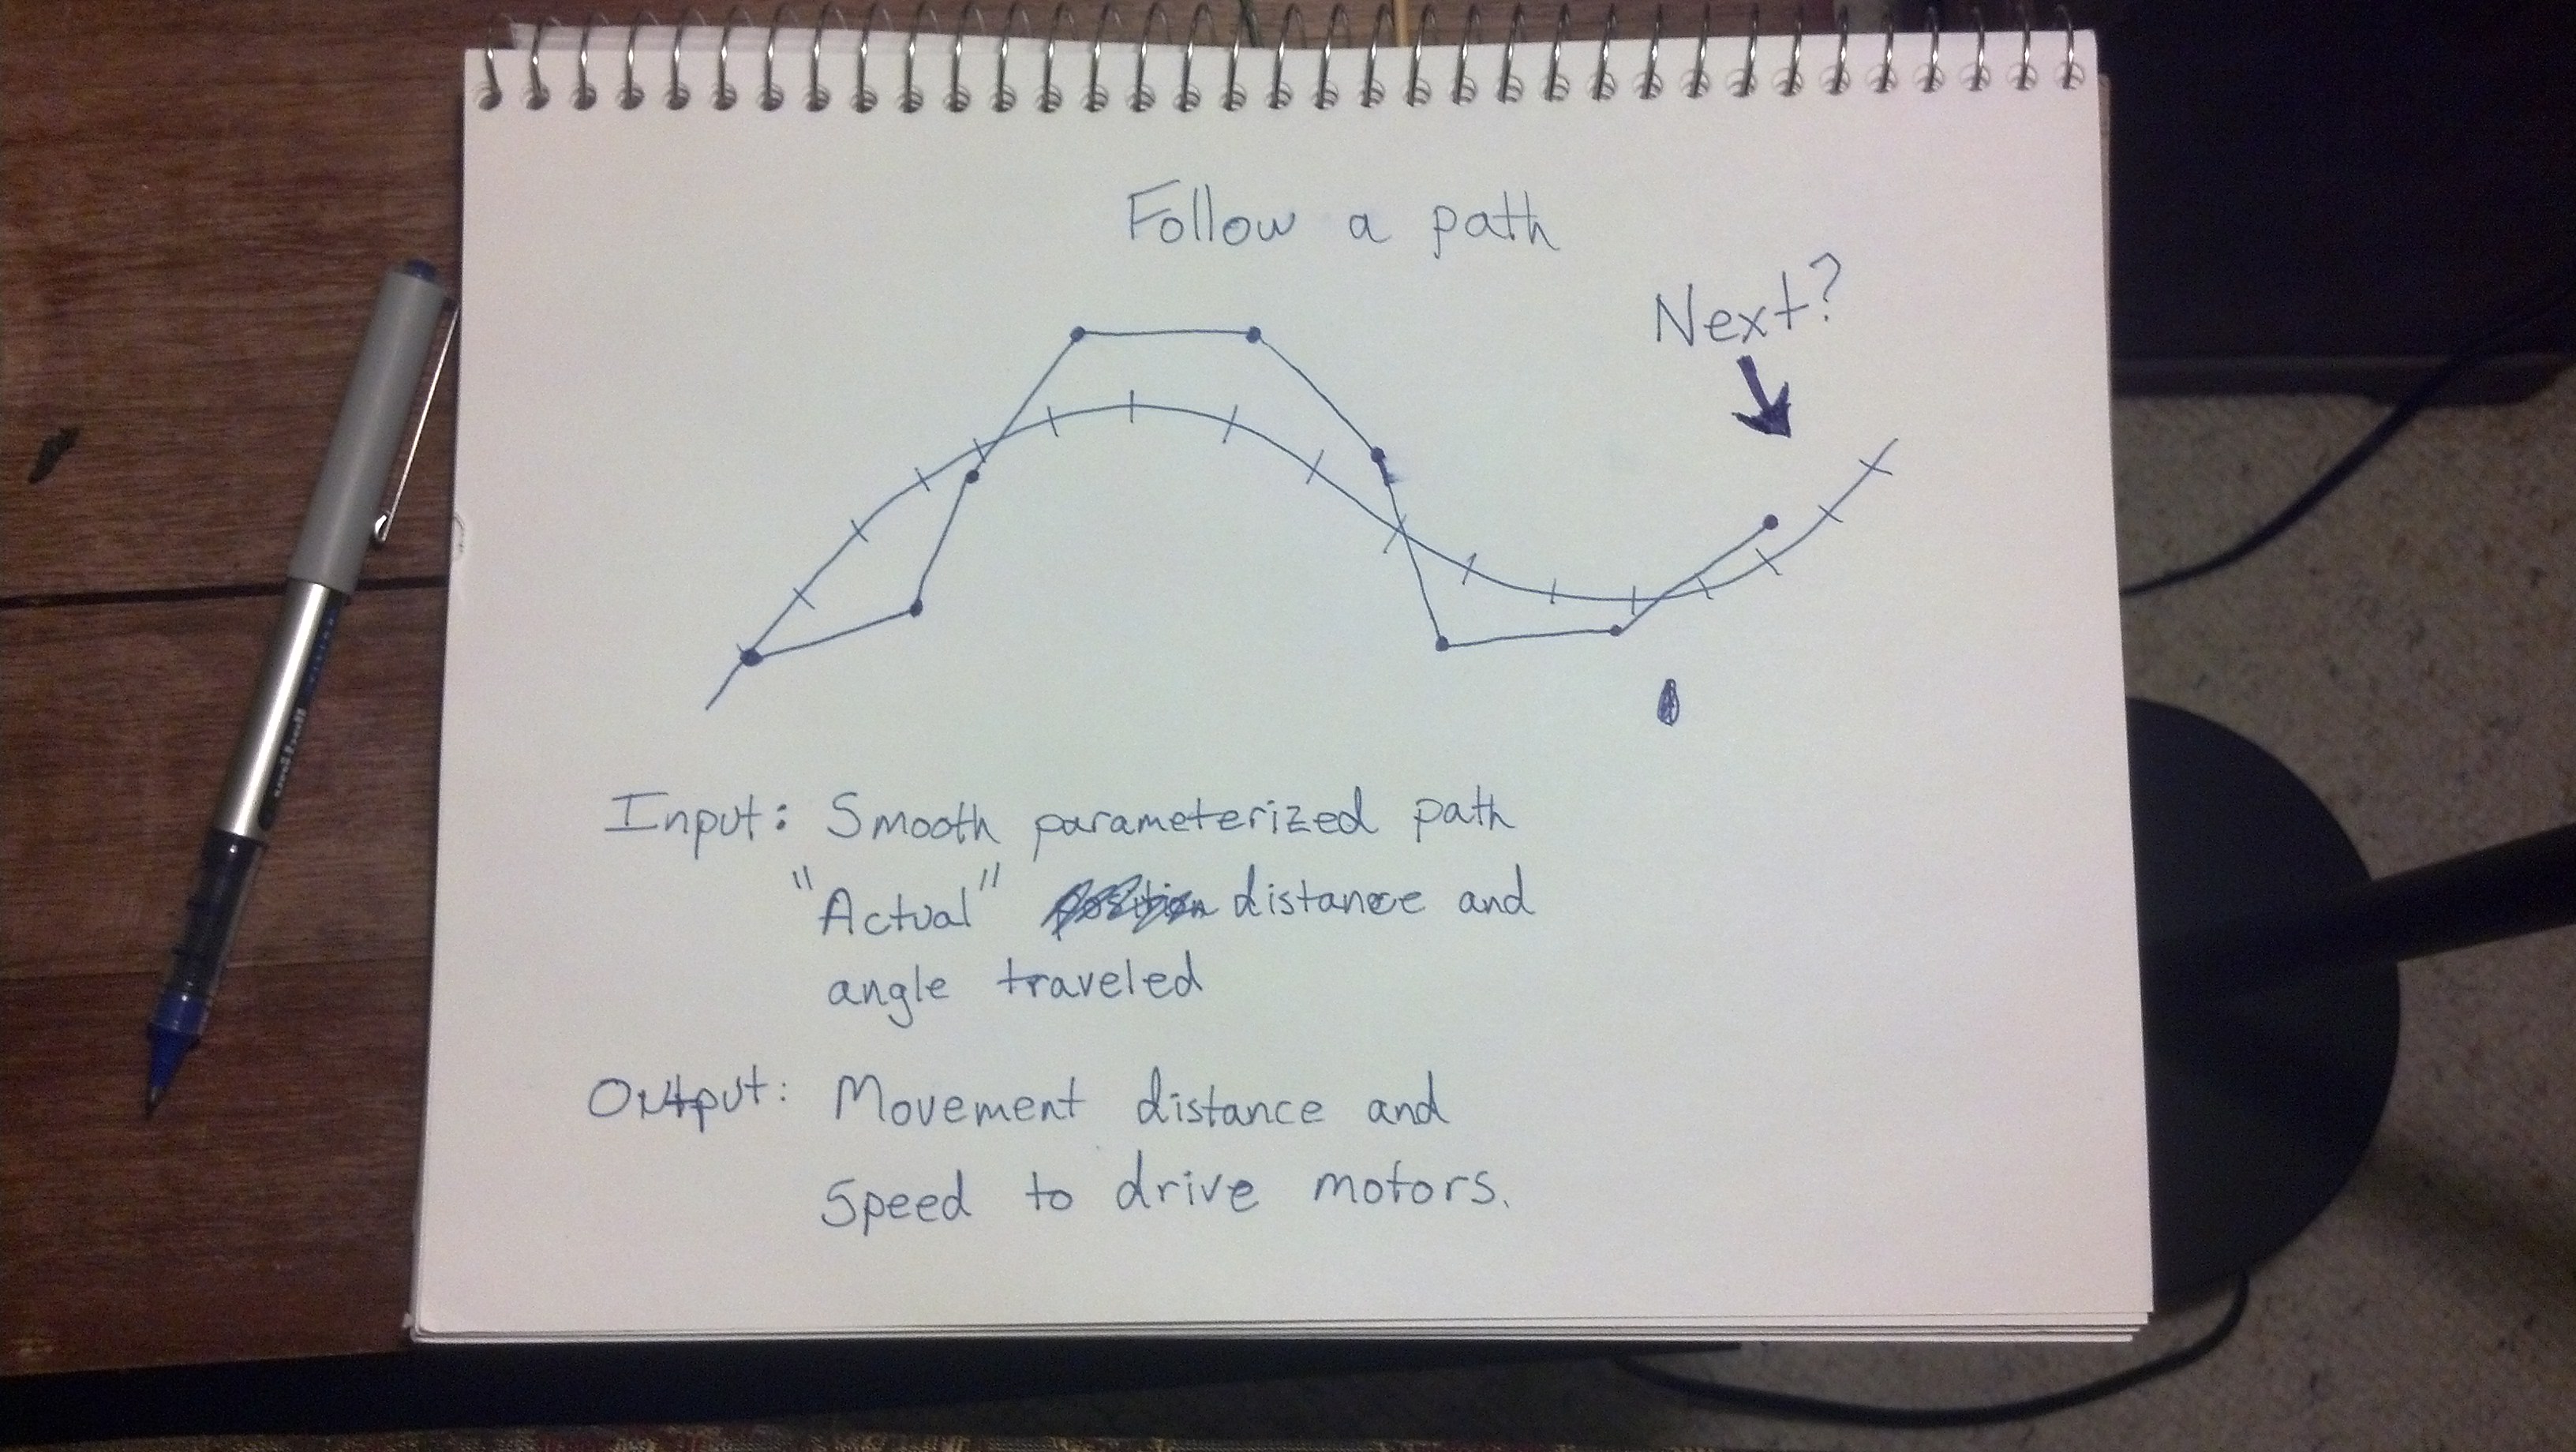 Follow a path
Next?
Input: Smooth parameterized path
"Actual" position distance and
angle traveled
Output: Movement distance and
Speed to drive motors.
uni-ball